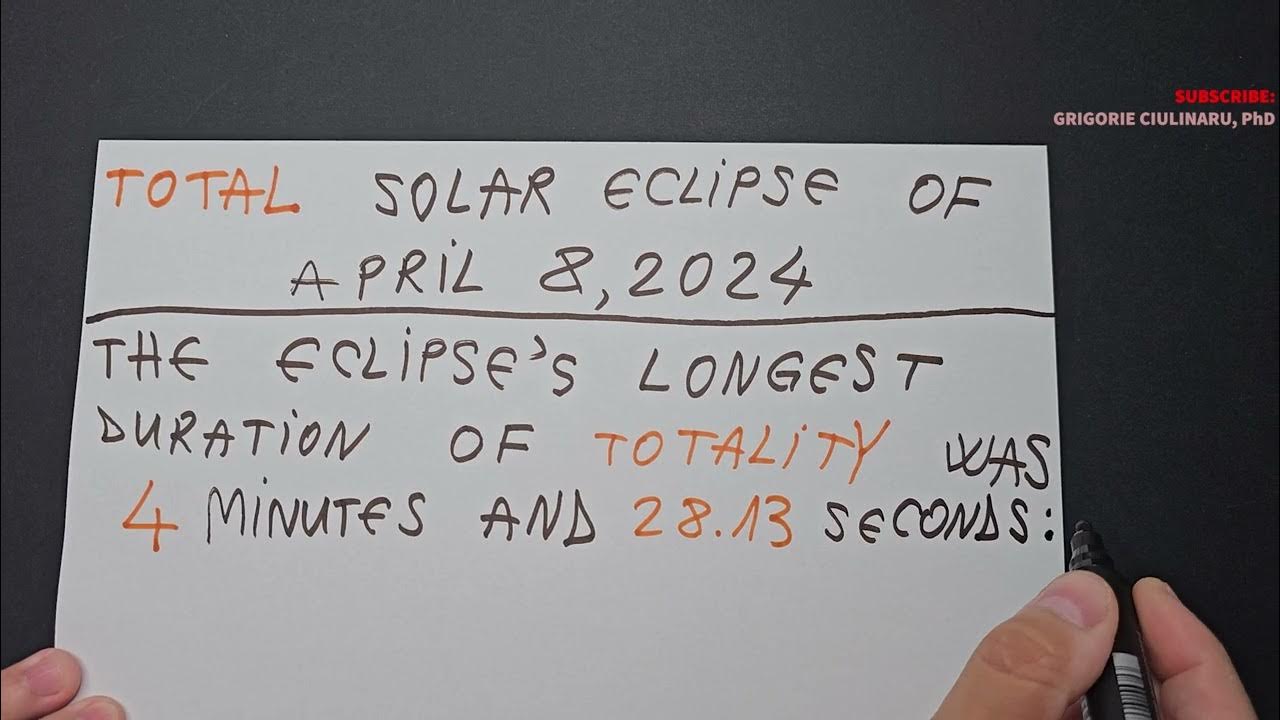 SUBSCRIBE:
GRIGORIE CIULINARU, PhD
TOTAL SOLAR ECLiPSE OF
APRiL 8, 2024
THE ECLiPSE'S LONGEST
DURATiON OF TOTALiTY WAS
4 MiNUTES AND 28.13 SECONDS: